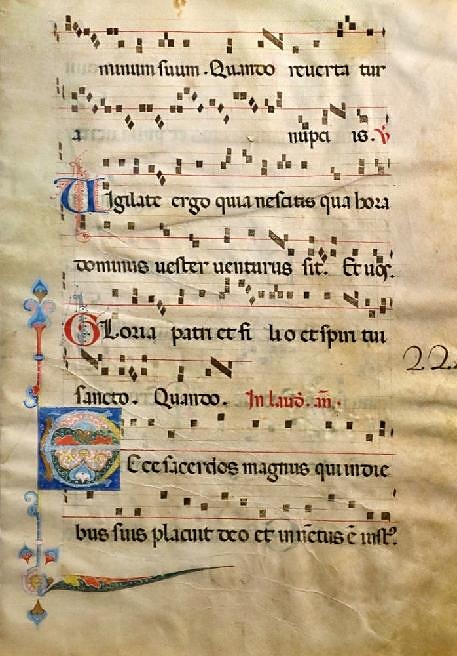 minum suum. Quando reverta tur
a nupci is. V̷
Vigilate ergo quia nescitis qua hora
dominus uester uenturus sit. Et uos.
Gloria patri et fi lio et spiri tui
sancto. Quando. In laud. añ.
Ecce sacerdos magnus qui in die
bus suis placuit deo et inuẽtus ẽ iust9.
22.